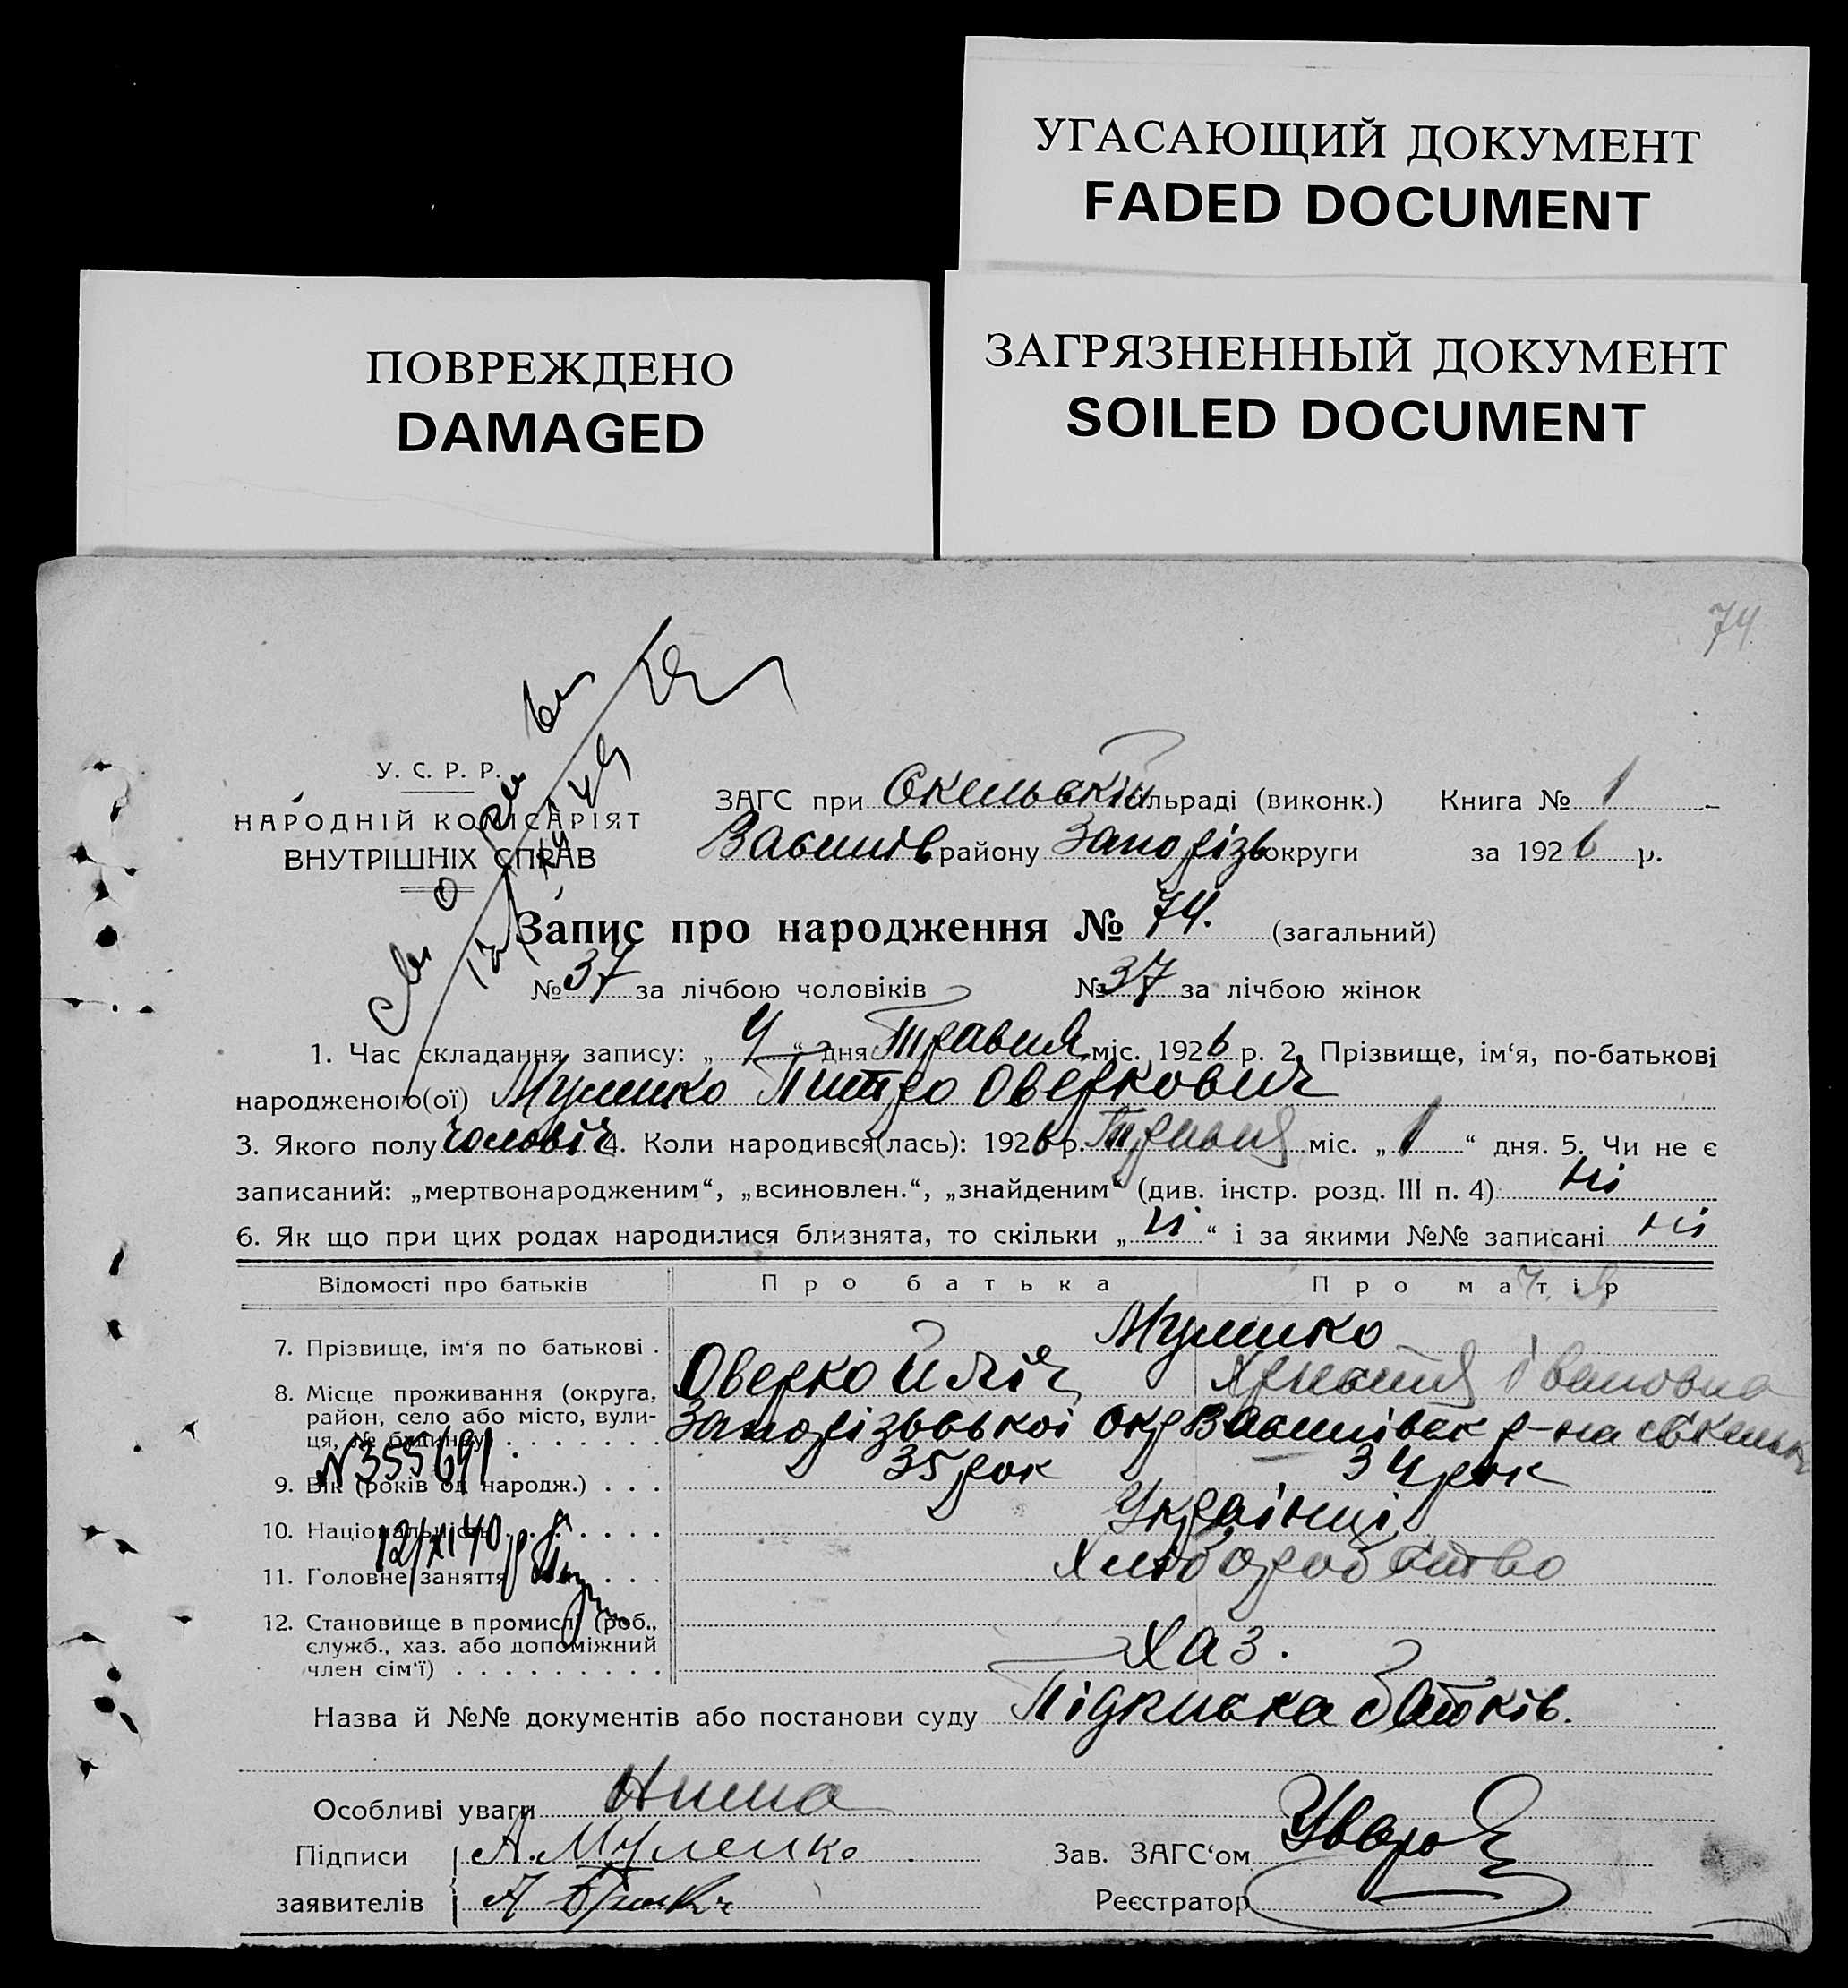 УГАСАЮЩИЙ ДОКУМЕНТ
FADED DOCUMENT
ПОВРЕЖДЕНО
DAMAGED
ЗАГРЯЗНЕННЫЙ ДОКУМЕНТ
SOILED DOCUMENT
74
У. С. Р. Р.
НАРОДНІЙ КОМІСАРІЯТ
ВНУТРІШНІХ СПРАВ
ЗАГС при Скельській сільраді (виконк.) Книга № 1
Василів району Запорізь округи за 1926 р.
Запис про народження № 74. (загальний)
№ 37 за лічбою чоловіків № 37 за лічбою жінок
1. Час складання запису: „ 4 “ дня Травня міс. 1926 р. 2. Прізвище, ім‘я, по-батькові
народженого(ої) Муленко Питро Оверкович
3. Якого полу чоловіч 4. Коли народився(лась): 1926 р. Травня міс. „ 1 “ дня. 5. Чи не є
записаний: „мертвонародженим“, „всиновлен.“, „знайденим“ (див. інстр. розд. III п. 4) ні
6. Як що при цих родах народилися близнята, то скільки „ ні “ і за якими №№ записані ні
Відомості про батьків Про батька Про матір
7. Прізвище, ім‘я по батькові . Муленко
Оверко Иліч Християя Івановна
8. Місце проживання (округа,
район, село або місто, вули-
ця, № будинку) . . . . . . . Запорізьської окр Василівск р-на
N 355691
9. Вік (років од народж.) . . . 35 рок 34 рок
10. Національність . . . . . . . Українці
12/XI 40 р
11. Головне заняття . . . Хліборобство
12. Становище в промислі (роб.,
служб., хаз. або допоміжний
член сім‘ї) . . . . . . . . . Хаз.
Назва й №№ документів або постанови суду Підписка батків.
Особливі уваги Нима
Підписи А. Муленко Зав. ЗАГС‘ом
заявителів Реєстратор